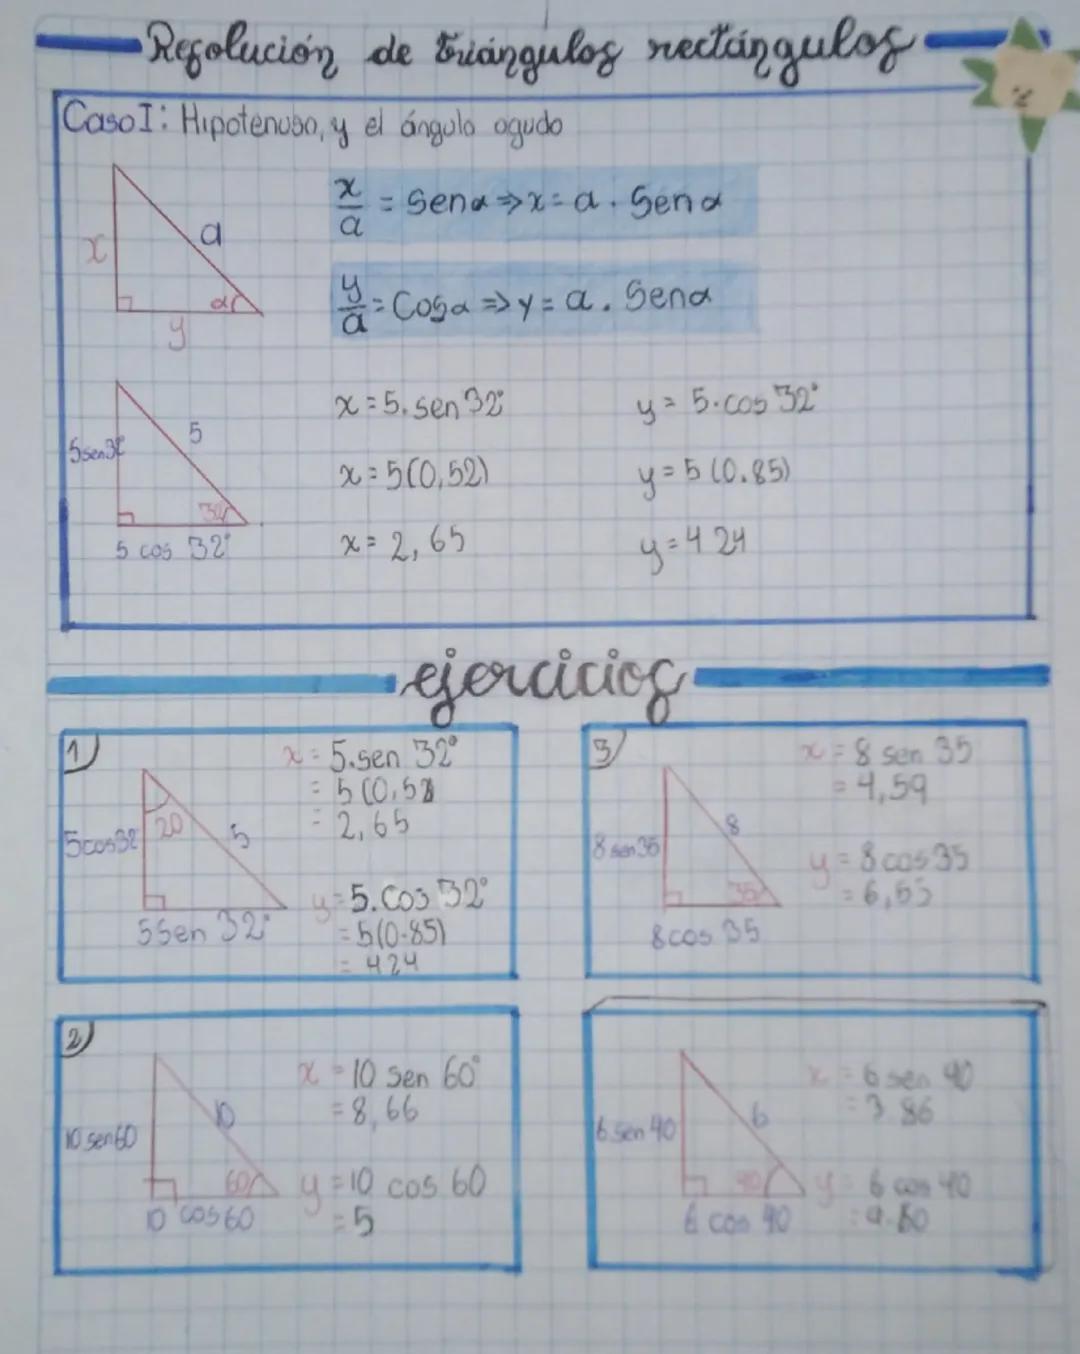 Resolución de triángulos rectángulos
Caso I: Hipotenusa, y el ángulo agudo
x/a = Senα ⇒ x = a . Senα
a
x
α
y
y/a = Cosα ⇒ y = a . Senα
x = 5. sen 32° y = 5. cos 32°
5
5sen32°
x = 5(0,52) y = 5 (0.85)
32°
5 cos 32°
x = 2,65 y = 4 24
ejercicios
1)
x = 5.sen 32°
= 5 (0,52
= 2,65
5cos32
20
5
y = 5. Cos 32°
= 5(0.85)
= 424
5Sen 32°
3)
x = 8 sen 35
= 4,59
8 sen 35
8
y = 8 cos 35
= 6,55
35
8 cos 35
2)
x = 10 Sen 60°
= 8,66
10
10 sen60
60
y = 10 cos 60
= 5
10 cos60
x = 6 sen 40
= 3 86
6
6 sen 40
40
y = 6 cos 40
= 4.60
6 cos 40